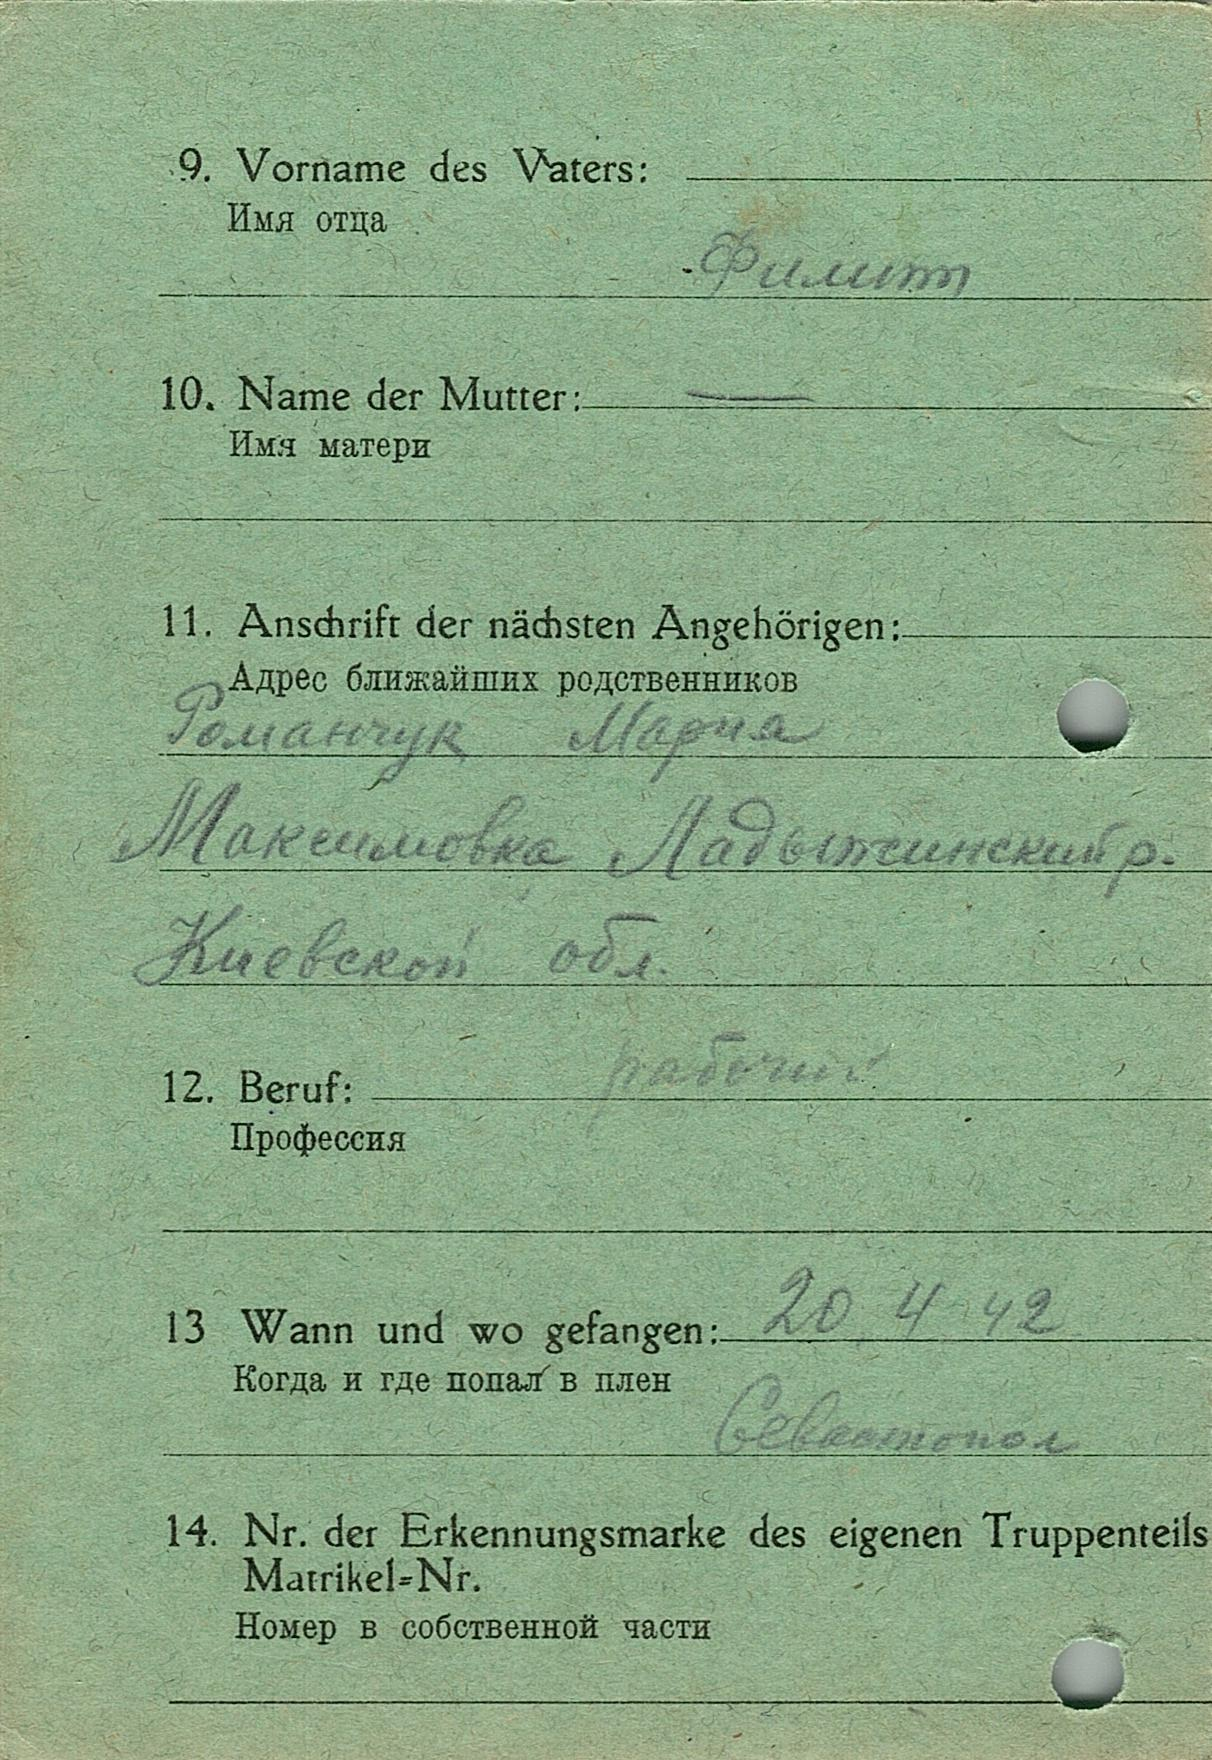 9. Vorname des Vaters:
Имя отца
Филипп
10. Name der Mutter: —
Имя матери
11. Anschrift der nächsten Angehörigen:
Адрес ближайших родственников
Романчук Мария
Максимовка Ладыжинский р.
Киевской обл.
рабочий
12. Beruf:
Профессия
13 Wann und wo gefangen: 20 4 42
Когда и где попал в плен
Севастопол
14. Nr. der Erkennungsmarke des eigenen Truppenteils
Matrikel=Nr.
Номер в собственной части